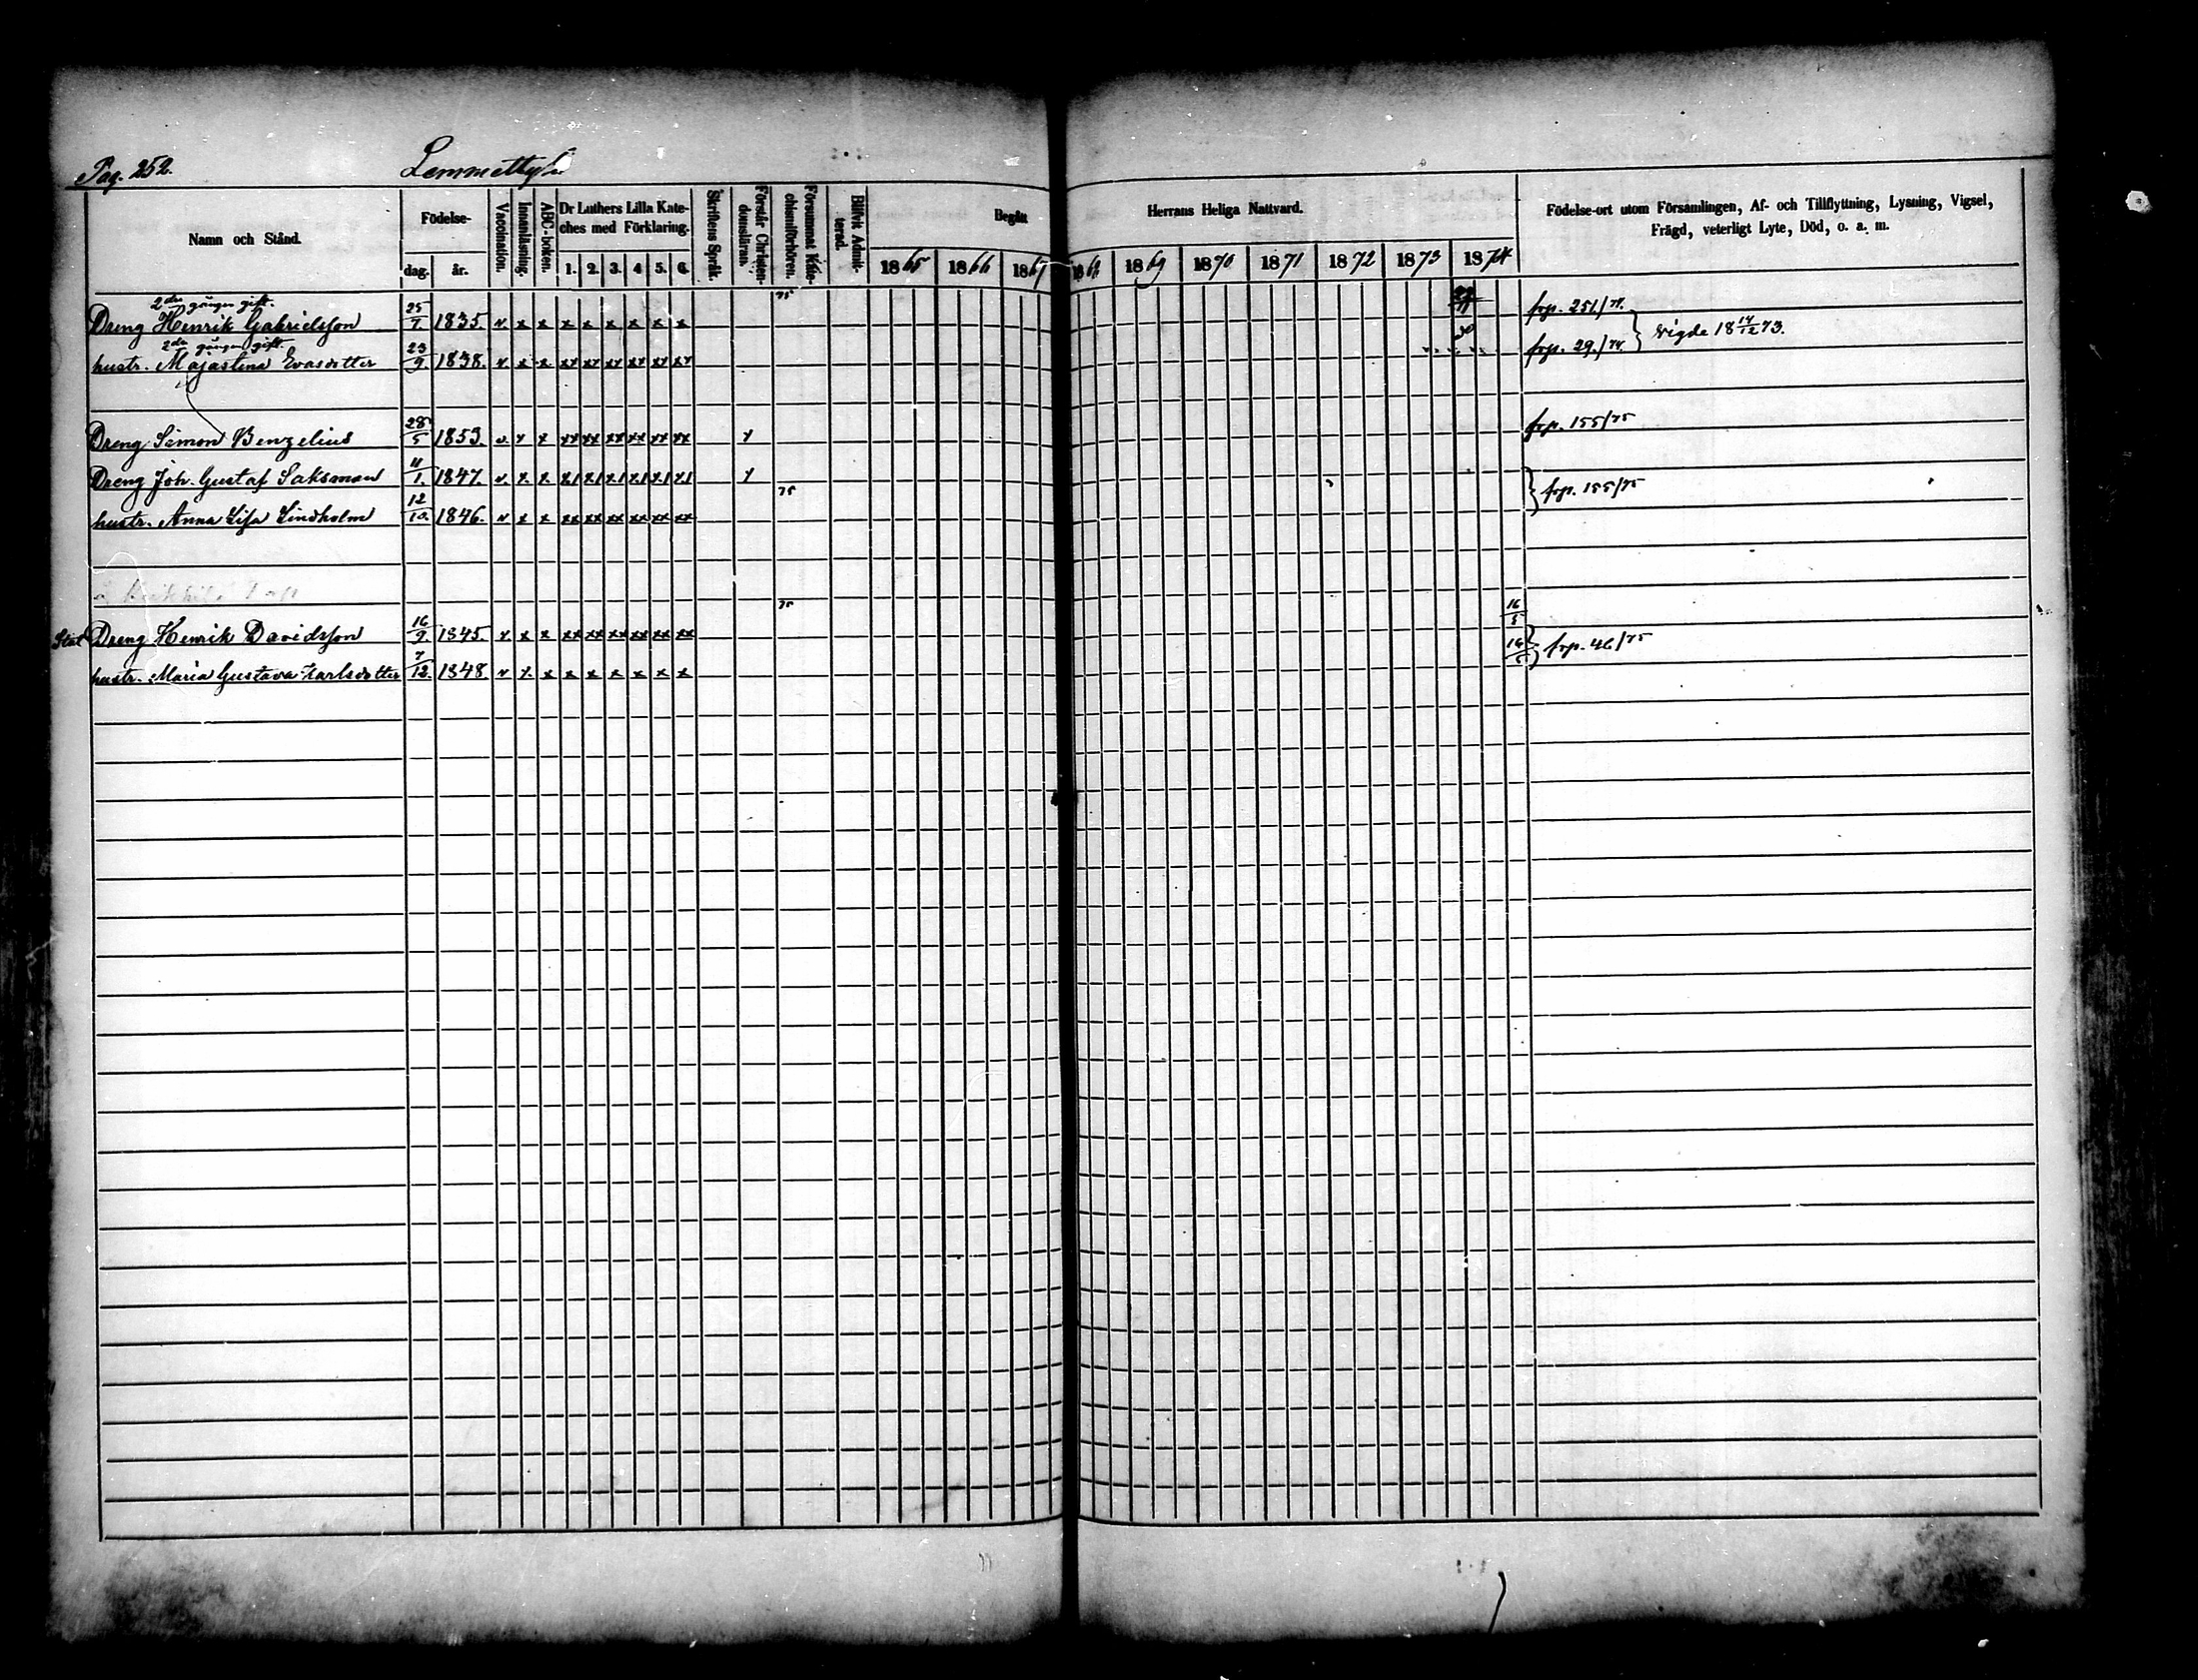 Pag. 252. Lemmettylä
Namn och Stånd. Födelse- dag. år. Vaccination. Innanläsning. ABC-boken. Dr Luthers Lilla Kateches med Förklaring. 1. 2. 3. 4 5. 6. Skriftens Språk. Förstår Christendomsläran. Försummat Katechismiförhören. Blifvit Admitterad. Begått Herrans Heliga Nattvard. Födelse-ort utom Församlingen, Af- och Tillflyttning, Lysning, Vigsel,
Frägd, veterligt Lyte, Död, o. a. m.
1865 1866 1867 1868 1869 1870 1871 1872 1873 1874
2dra gången gift.
Dreng Henrik Gabrielsson 25/7 1835. v x x x x x x x x 75 frp. 251/74.
2dra gången gift.
hustr. Majastina Evasdotter 23/9. 1838. v x x xx xx xx xx xx xx 30 frp. 29./74. } vigde 18 14/12 73.
Dreng Simon Benzelius 28/5 1853. v. x x xx xx xx xx xx xx x frp. 155/75
Dreng Joh. Gustaf Saksman 11/1. 1847. v. x x x1 x1 x1 x1 x1 x1 x
hustr. Anna Lisa Lindholm 12/10. 1846. v x x xx xx xx xx xx xx 75 } frp. 155/75
Stat Dreng Henrik Davidsson 16/9 1845. v x x xx xx xx xx xx xx 75 16/5
hustr. Maria Gustava Karlsdotter 7/12. 1848 v x x x x x x x x 16/5 } frp. 46/75